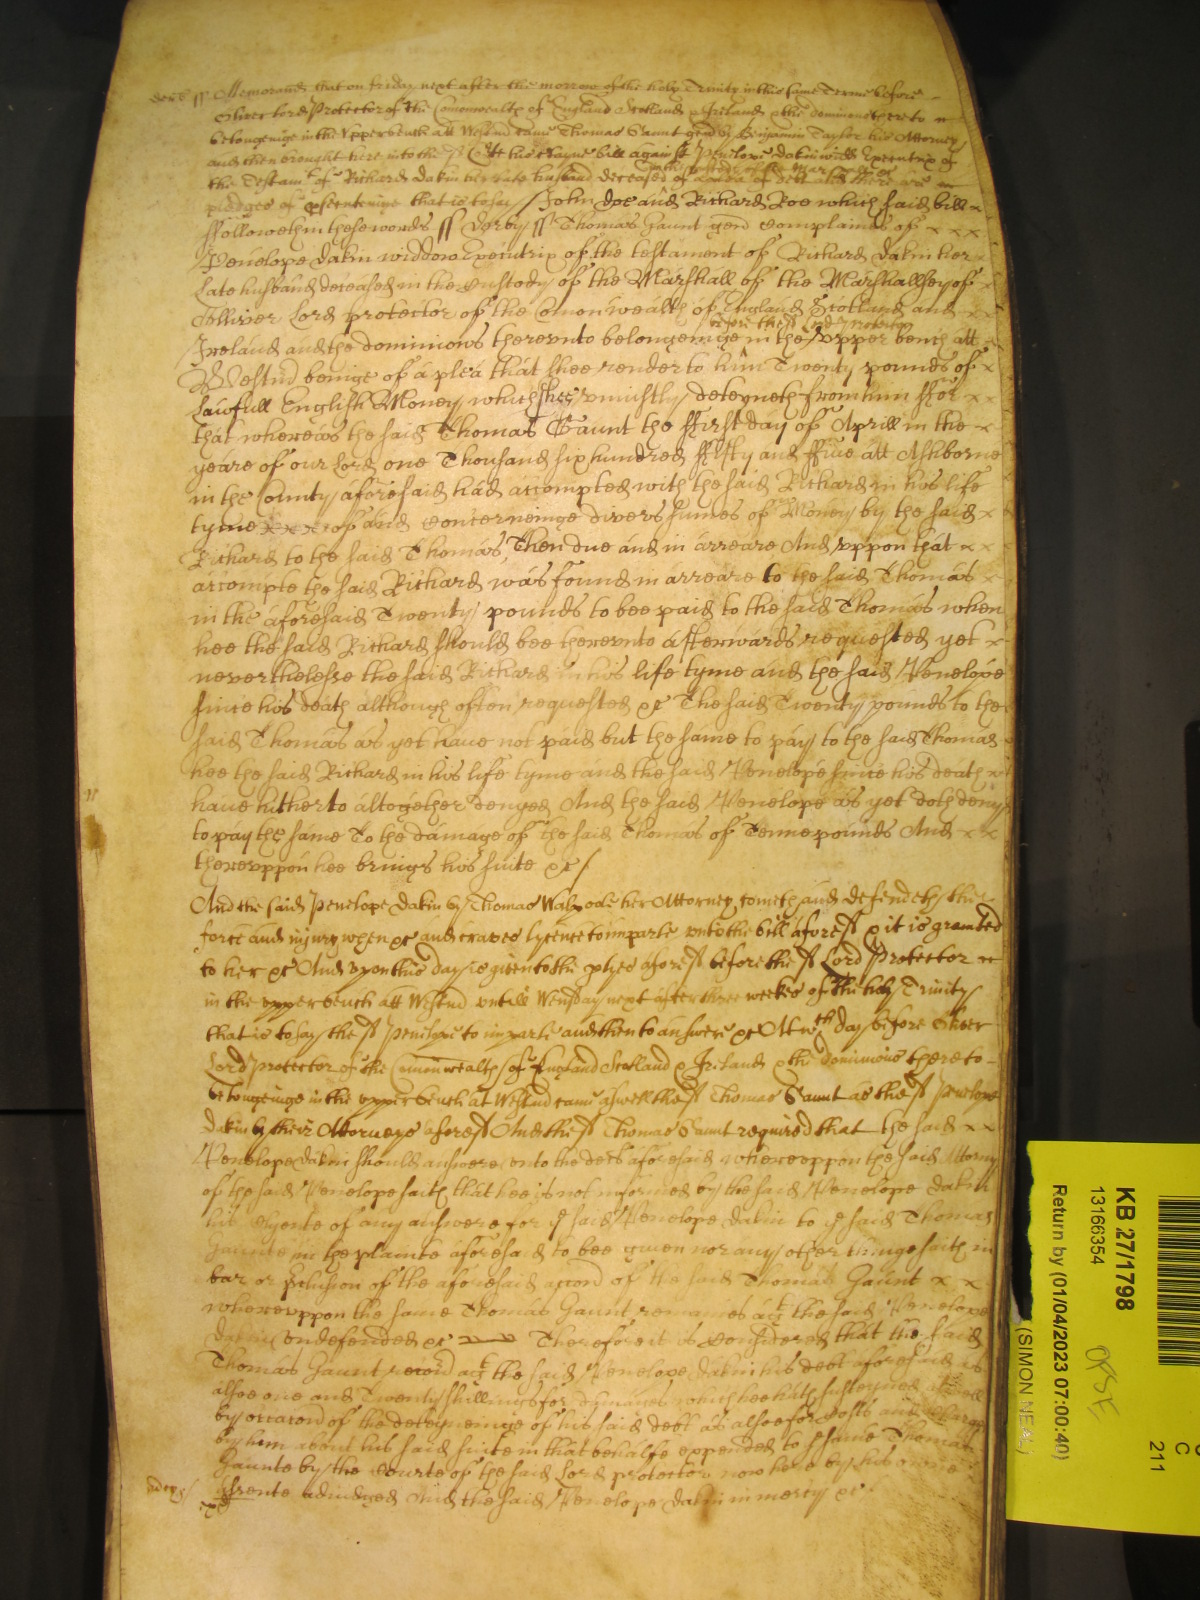 Memorand that on friday next after the morrow of the holy Trinity in this same Terme before
Oliver Lord Protector of the Comonwealth of England Scotland & Ireland & the dominions thereto
belongeinge in the upper bench att Westmr came Thomas Gaunt gend by Benjamin Taylor his Attorney
and then brought here into the sd Court his bill against Penelope Dakin widd Executrix of
the Testamt of Richard Dakin her late husband deceased of a plea of debt And there are
pledges of prosecutinge that is to say / John doe and Richard Roe which said bill x
ffolloweth in these words ss Derby ss Thomas Gaunt gend Complaines of x x x
Penelope Dakin widdow Executrix of the testament of Richard Dakin her x
Late husband deceased in the Custody of the Marshall of the Marshallsey of x
Olliver Lord protector of the Comonwealth of England Scotland and x x
before the sd Lord protector
Ireland and the dominions thereunto belongeinge in the upper bench att x
Westmr beinge of a plea that shee render to him Twenty pounds of x
Lawfull English Money which shee uniustly deteyneth from him ffor x x
that whereas the said Thomas Gaunt the ffirst day of Aprill in the x
yeare of our Lord one Thousand six hundred ffifty and ffive att Ashborne
in the County aforesaid had accompted with the said Richard in his life
tyme x x x of and Concerneinge divers sumes of Money by the said x
Richard to the said Thomas Then due and in arreare And uppon that x x
accompte the said Richard was found in arreare to the said Thomas x
in the aforesaid Twenty pounds to bee paid to the said Thomas when
hee the said Richard should bee thereunto afterwards requested yet x
neverthelesse the said Richard in his life tyme and the said Penelope
since his death although often requested &c The said Twenty pounds to the
said Thomas as yet have not paid but the same to pay to the said Thomas
hee the said Richard in his life tyme and the said Penelope since his death x
have hitherto altogether denyed And the said Penelope as yet doth deny
to pay the same To the damage of the said Thomas of Tenne pounds And x x
thereuppon hee brings his suite &c /
And the said Penelope Dakin by Thomas Walpoole her Attorney cometh and defendeth the
force and injury when &c and craves lycence to imparle unto the bill aforesd & it is graunted
to her &c And upon this day is given to the ptyes aforesd before the sd Lord Protector
in the upper bench att Westmr untill Wensday next after three weekes of the holy Trinity
that is to say the sd Penelope to imparle and then to answere &c Att wch day before Oliver
Lord protector of the Comonwealth of England Scotland & Ireland & the dominions thereto
belongeinge in the upper bench at Westmr came aswell the sd Thomas Gaunt as the sd Penelope
Dakin by their Attorneys aforesd And the sd Thomas Gaunt required that the said x x
Penelope Dakin should answere unto the debt aforesaid whereuppon the said Attorny
of the said Penelope saith that hee is not informed by the said Penelope Dakin
his Clyente of any answere for ye said Penelope Dakin to ye said Thomas
Gaunte in the plainte aforesaid to bee given nor any other thinge saith in
bar or of the aforesaid accord of the said Thomas Gaunt x x
whereuppon the same Thomas Gaunt remaines agt the said Penelope
Dakin undefended &c Therefore it is Considered that the said
Thomas Gaunt recovr agt the said Penelope Dakin his debt aforesaid as
alsoe one and Twenty shillings for damages which hee hath susteyned aswell
by occacond of the deteyneinge of his said debt as alsoe for Costs and charges
by him about his said suite in that behalfe expended to ye same Thomas
Gaunte by the Courte of the said Lord protector now here by his owne
Assente adiudged And the said Penelope Dakin in mercy &c
KB 27/1798
13166354
Return by (01/04/2023 07:00:40)
(SIMON NEAL)
C
211